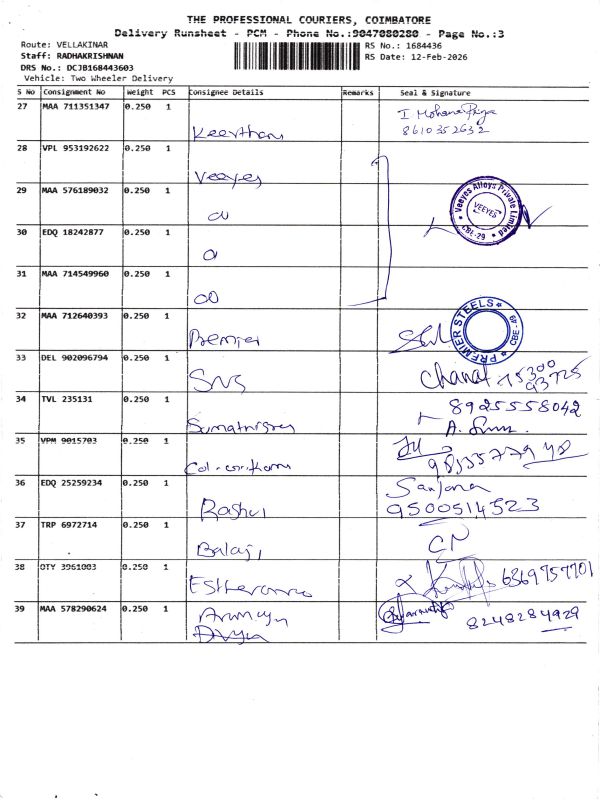 THE PROFESSIONAL COURIERS, COIMBATORE
Delivery Runsheet - PCM - Phone No.:9047080280 - Page No.:3
Route: VELLAKINAR
RS No.: 1684436
Staff: RADHAKRISHNAN
RS Date: 12-Feb-2026
DRS No.: DCJB168443603
Vehicle: Two Wheeler Delivery
S No Consignment No Weight PCS Consignee Details Remarks Seal & Signature
27 MAA 711351347 0.250 1 Keerthana I Mohana Priya
8610352632
28 VPL 953192622 0.250 1 Veeyes
29 MAA 576189032 0.250 1
Veeyes Alloys Private Limited
VEEYES
CBE-29
30 EDQ 18242877 0.250 1
31 MAA 714549960 0.250 1
32 MAA 712640393 0.250 1 Premier
PREMIER STEELS
CBE - 49
33 DEL 902096794 0.250 1 SNS 75300
93725
34 TVL 235131 0.250 1 8925558042
35 VPM 9015703 0.250 1
36 EDQ 25259234 0.250 1 Rashul Sanjana
9500514523
37 TRP 6972714 0.250 1 Balaji
38 OTY 3961003 0.250 1 6369757701
39 MAA 578290624 0.250 1 8248284929
Divya